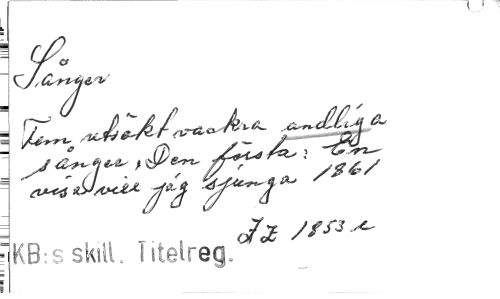 Sånger
Fem utsökt vackra andliga
sånger, Den första: En
visa vill jag sjunga 1861
1853
KB:s skill. Titelreg.